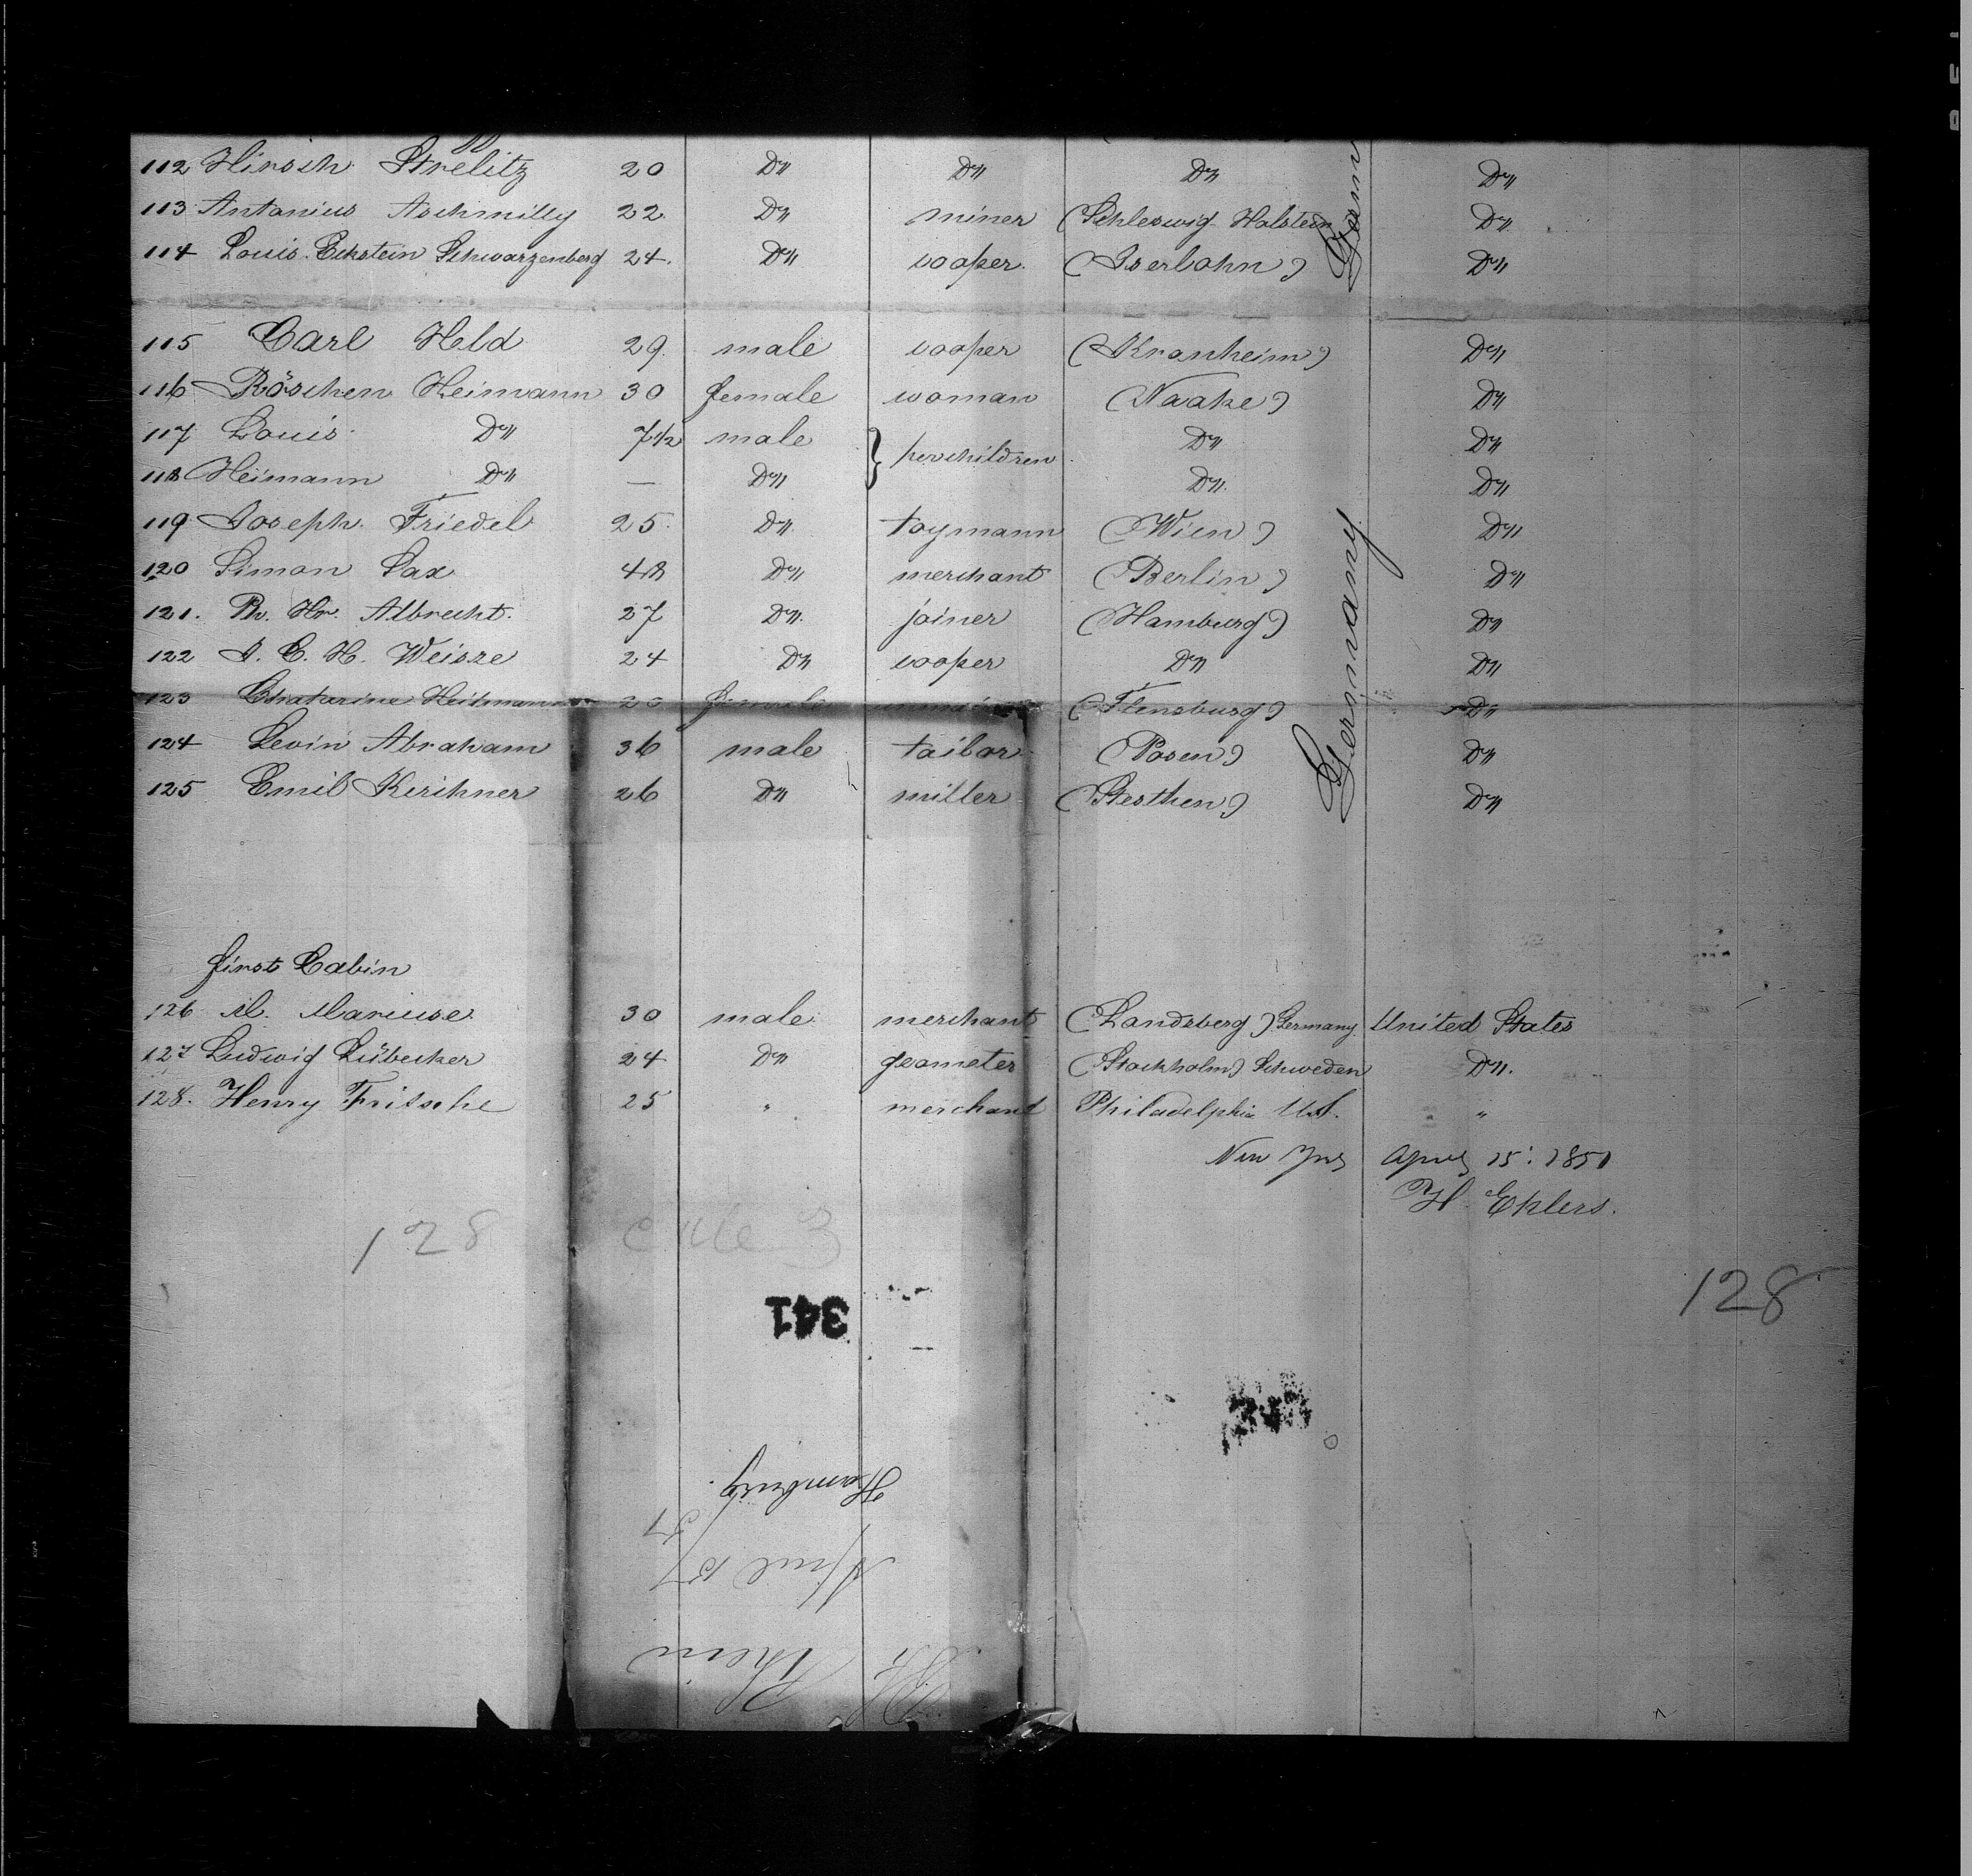 112 Hirsch Strelitz 20 Do Do Do Do
113 Antonius Aschmilly 22 Do miner (Schleswig Holstein Do
114 Louis Eckstein Schwarzenberg 24. Do cooper. (Iserlohn) Do
115 Carl Held 29. male cooper (Kranheim) Do
116 Röschen Heimann 30 female woman (Naake) Do
117 Louis Do 7 1/2 male } her children Do Do
118 Heimann Do — Do Do Do
119 Joseph Friedel 25. Do toymann (Wien) Do
120 Simon Sax 48 Do merchant (Berlin) Do
121. Ph. Hr. Albrecht. 27 Do joiner (Hamburg) Do
122 J. C. H. Weisze 24 Do cooper Do Do
123 Chatarina Heitmann female (Flensburg) Do
124 Levin Abraham 36 male tailor (Posen) Do
125 Emil Kirchner 26 Do miller (Stesthen) Do
Germany
first Cabin
126 M. Maruse 30 male merchant (Landsberg) Germany United States
127 Ludwig Lübecker 24 Do geometer (Stockholm) Schweden Do
128. Henry Fritsche 25 " merchant Philadelphia U.S. "
New York April 15. 1851
H. Ehlers.
128
128
341
Hamburg.
April 15/51
Sh. Rhein